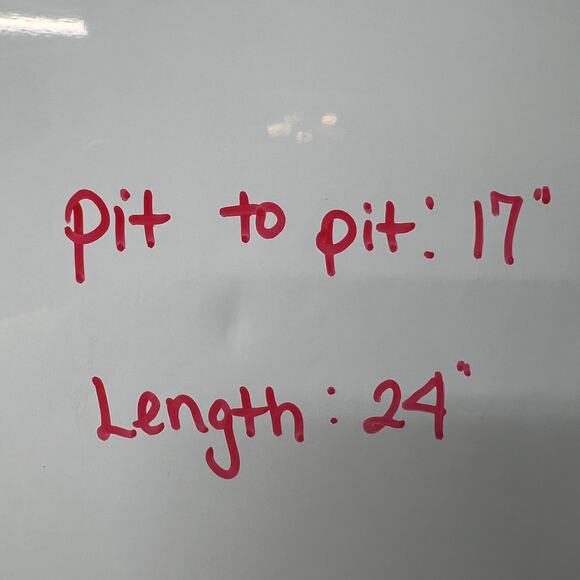 pit to pit: 17"
Length: 24"